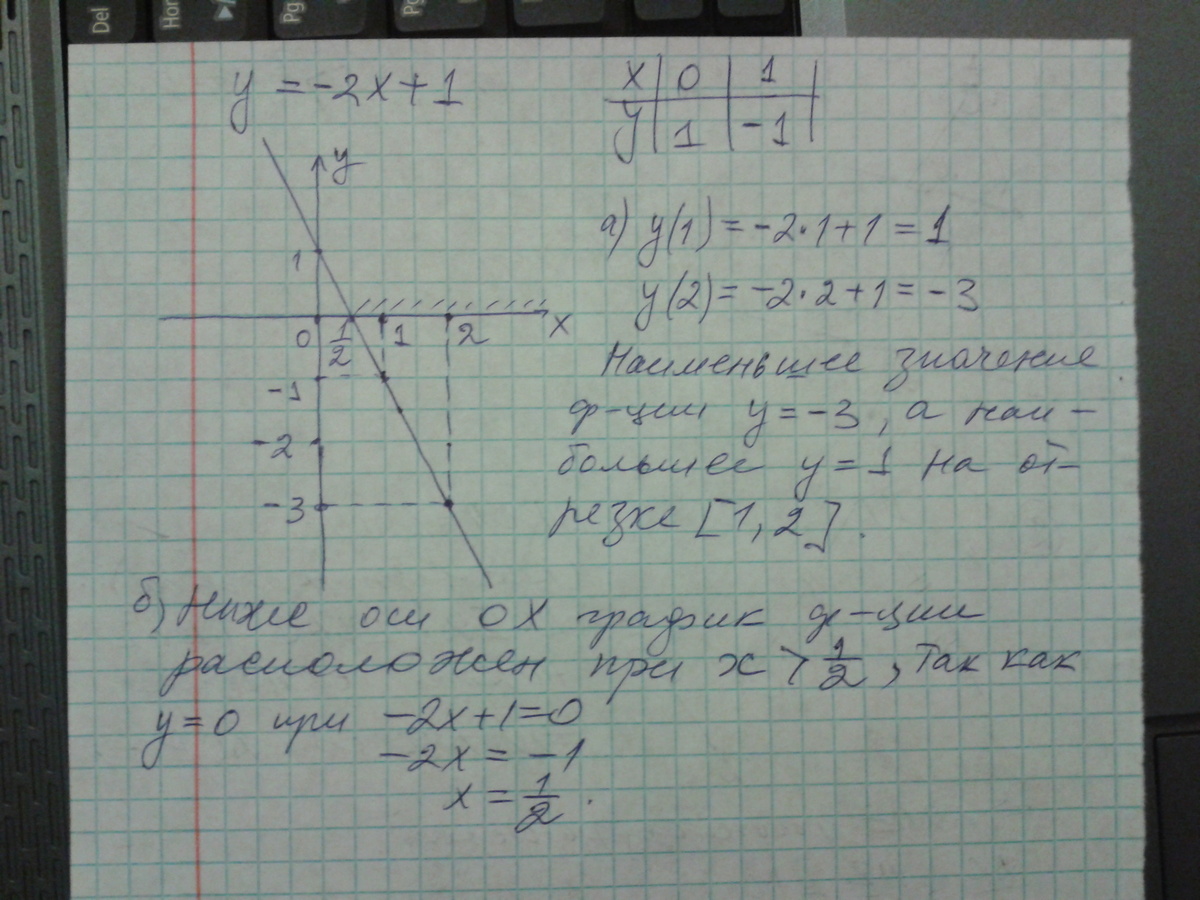 Del Hom Pg Pg
y = -2x+1
x | 0 | 1
y | 1 | -1
y
1
0 1/2 1 2 x
-1
-2
-3
а) y(1) = -2·1+1 = 1
y(2) = -2·2+1 = -3
Наименьшее значение
ф-ции y = -3, а наи-
большее y = 1 на от-
резке [1, 2].
б) Ниже оси OX график ф-ции
расположен при x > 1/2, так как
y = 0 при -2x+1=0
-2x = -1
x = 1/2.